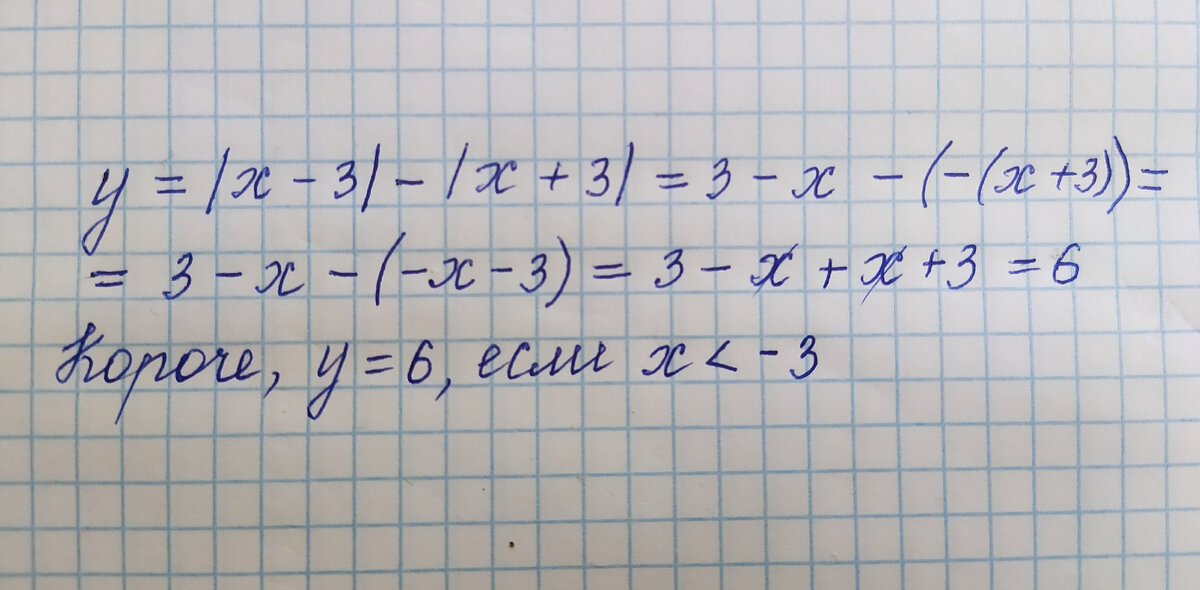 y = |x - 3| - |x + 3| = 3 - x - (-(x + 3)) =
= 3 - x - (-x - 3) = 3 - x + x + 3 = 6
Короче, y = 6, если x < -3